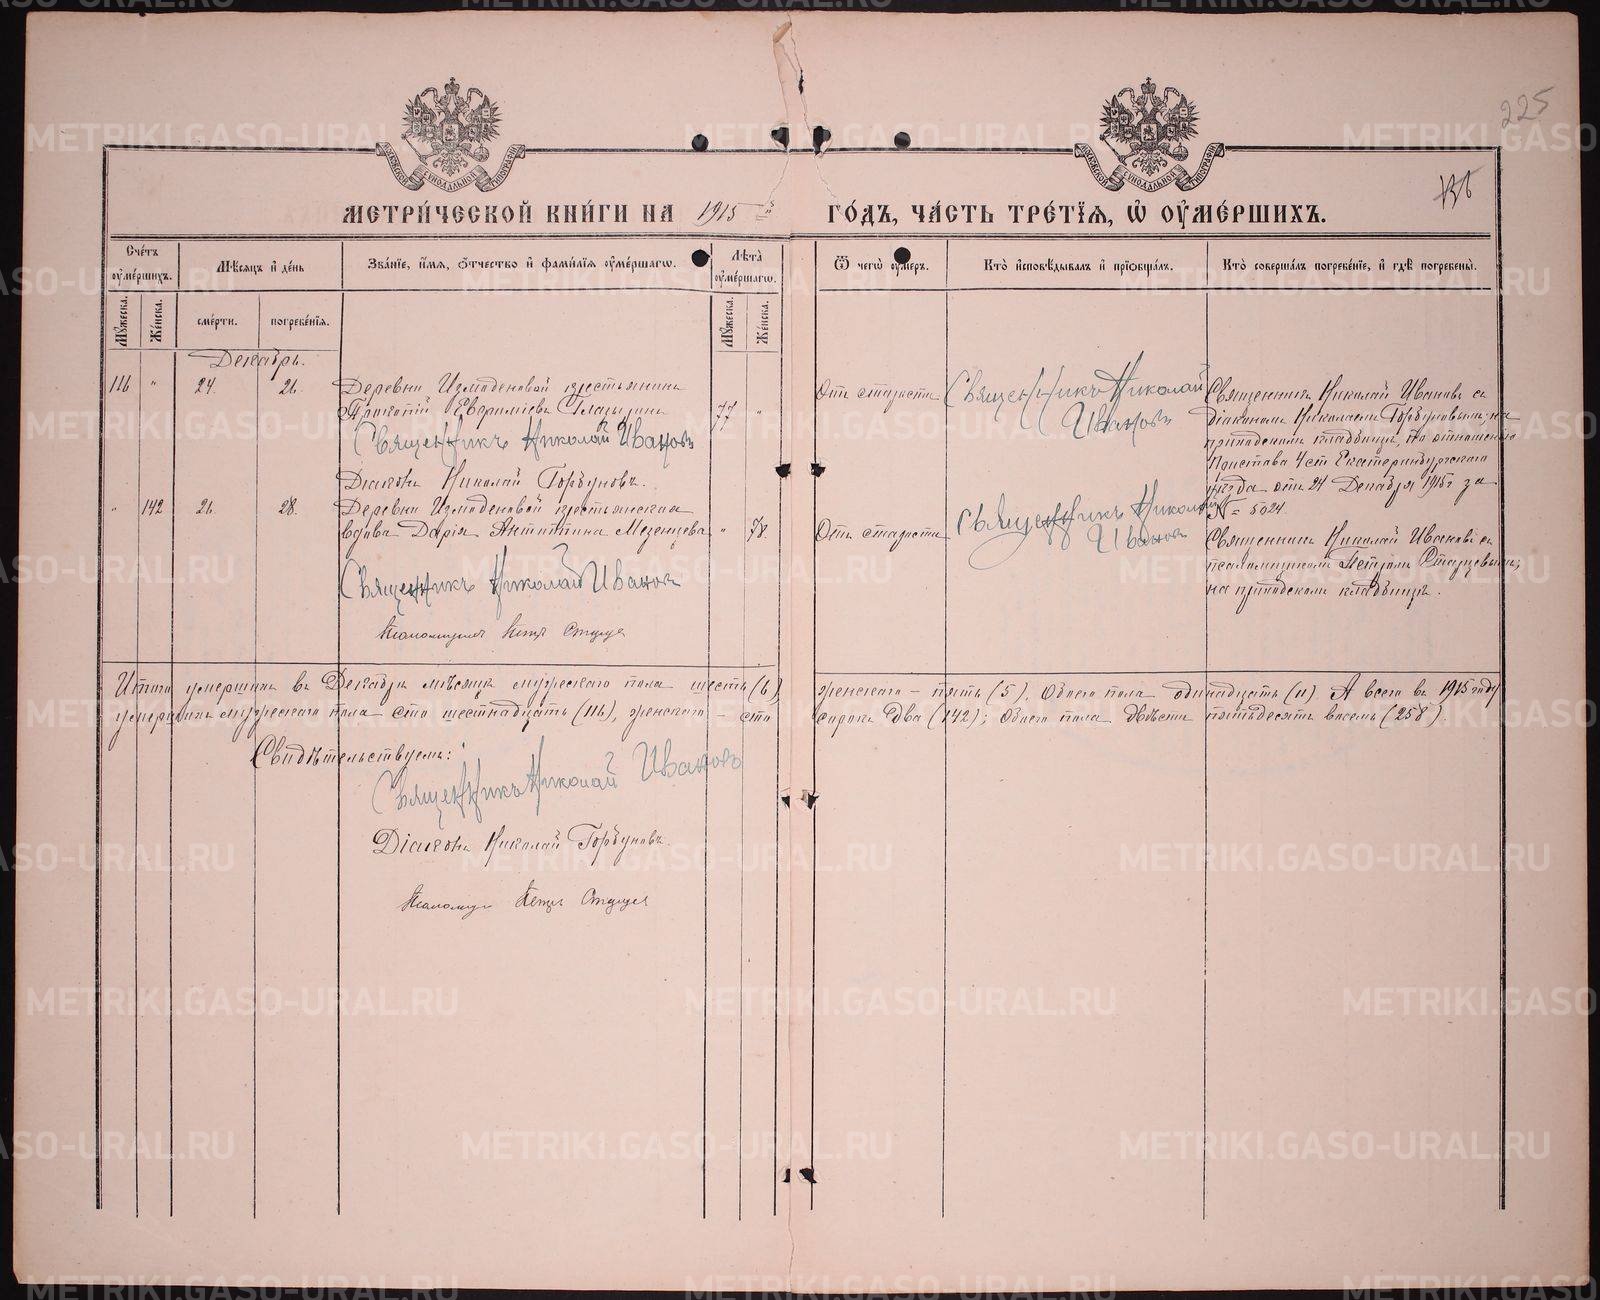 225
136
МЕТРИ́ЧЕСКОЙ КНИ́ГИ НА 1915й
ГО́ДЪ, ЧА́СТЬ ТРЕ́ТІЯ, Ѡ҆ ОУ҆МЕ́РШИХЪ.
Сче́тъ оу҆ме́ршихъ.
Мѣ́сяцъ и҆ де́нь
Зва́ніе, и҆́мя, ѻ҆́тчество и҆ фами́лія оу҆ме́ршагѡ.
Лѣ́та оу҆ме́ршагѡ.
Ѿ чегѡ̀ оу҆́меръ.
Кто̀ и҆сповѣ́дывалъ и҆ прїѡбща́лъ.
Кто̀ соверша́лъ погребе́ніе, и҆ гдѣ̀ погребены̀.
Мꙋ́жеска.
Же́нска.
сме́рти.
погребе́нія.
Мꙋ́жеска.
Же́нска.
Декабрь.
116 " 24. 26. Деревни Измоденовой крестьянинъ
Прокопій Евфиміевъ Глазыринъ 77 "
Священникъ Николай Ивановъ
Діаконъ Николай Горбуновъ.
Отъ старости
Священникъ Николай
Ивановъ
Священникъ Николай Ивановъ съ
діакономъ Николаемъ Горбуновымъ, на
приходскомъ кладбищѣ, по отношенію
Пристава 4 ст Екатеринбургскаго
уѣзда отъ 24 Декабря 1915 г за
№ 5024.
" 142 26. 28. Деревни Измоденовой крестьянская
вдова Дарія Антипина Мезенцева " 78.
Священникъ Николай Ивановъ
Псаломщикъ Петръ Старцевъ
Отъ старости
Священникъ Николай
Ивановъ
Священникъ Николай Ивановъ съ
псаломщикомъ Петромъ Старцевымъ,
на приходскомъ кладбищѣ.
Итого умершихъ въ Декабрѣ мѣсяцѣ мужескаго пола шесть (6), женскаго – пять (5). Обоего пола одинадцать (11) А всего въ 1915 году
умершихъ мужескаго пола – сто шестнадцать (116), женскаго – сто сорокъ два (142); обоего пола двѣсти пятьдесятъ восемь (258).
Свидѣтельствуемъ:
Священникъ Николай Ивановъ
Діаконъ Николай Горбуновъ.
Псаломщикъ Петръ Старцевъ
METRIKI.GASO-URAL.RU